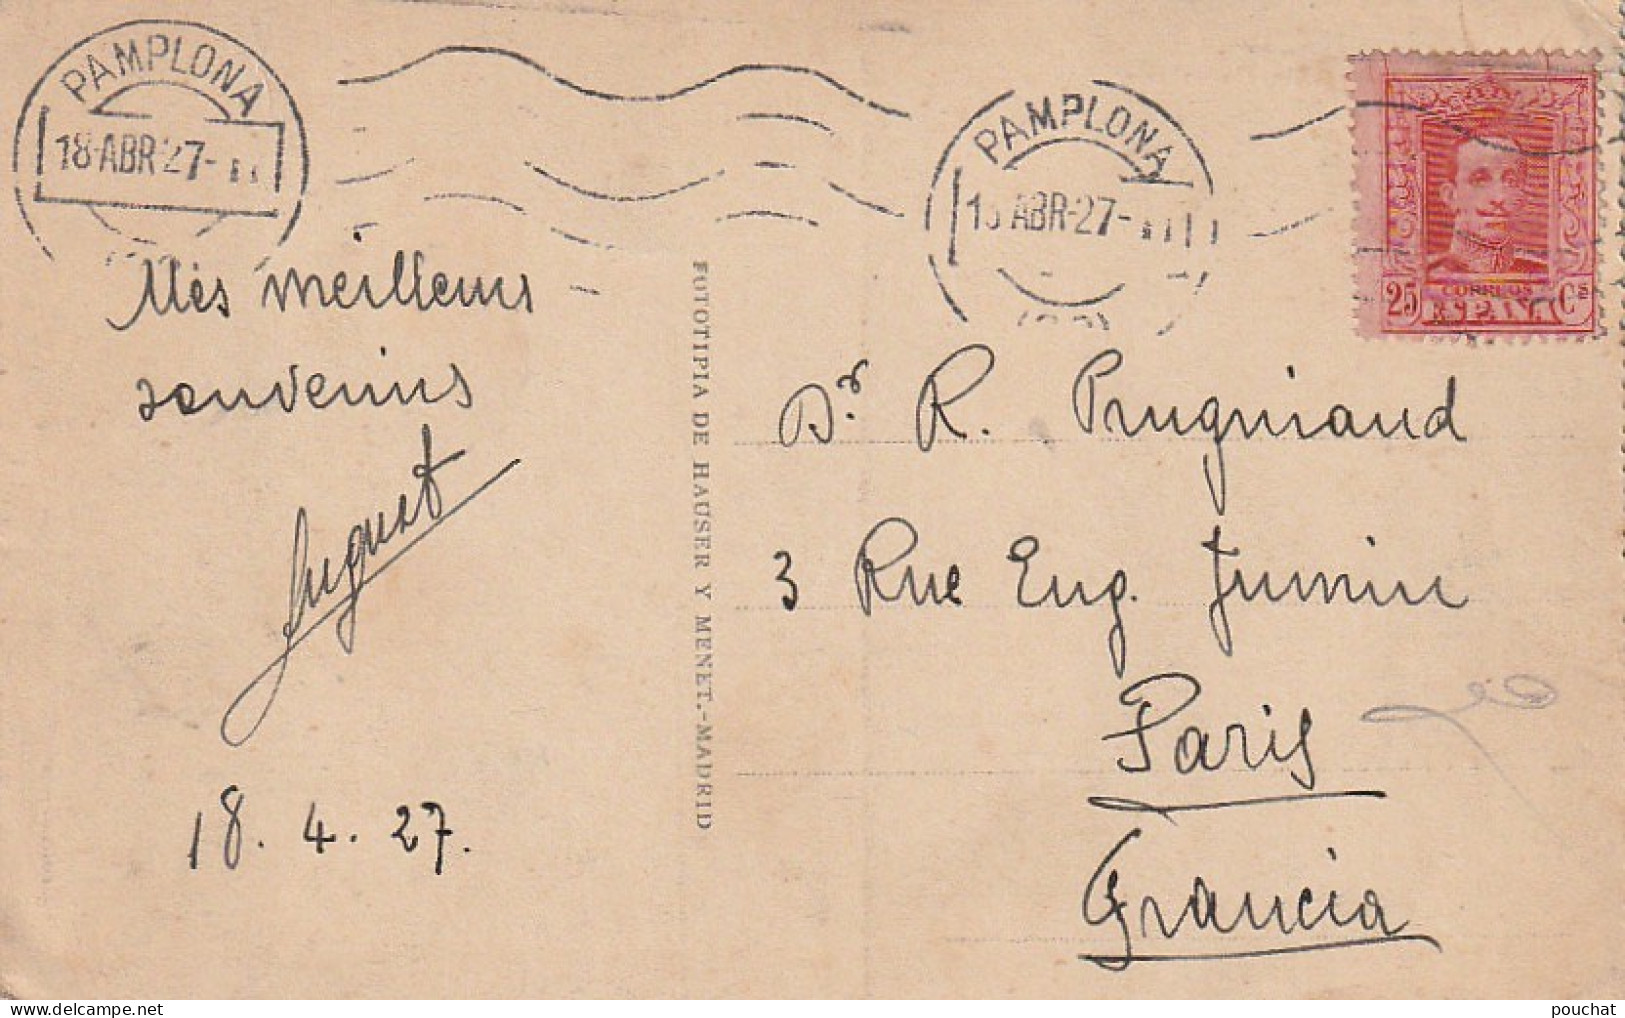 PAMPLONA
18·ABR·27-
PAMPLONA
ABR-27-
25 CORREOS Cs
ESPAÑA
Mes meilleurs
souvenirs
August
18. 4. 27.
FOTOTIPIA DE HAUSER Y MENET.-MADRID
Dr. R. Prugniaud
3 Rue Eug. Jumin
Paris
Francia
pouchat